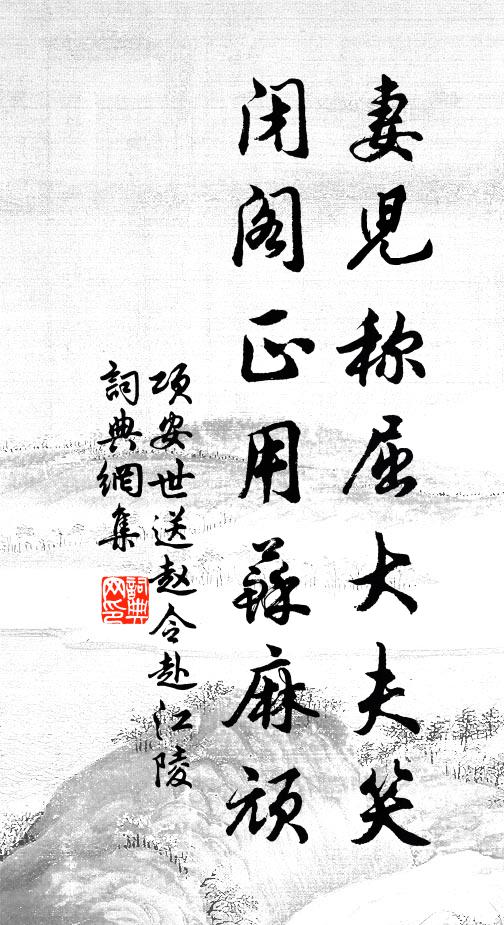 妻児称屈大夫笑
闭阁正用蘇麻頑
项安世送赵令赴江陵
詞典網集
詞典網印